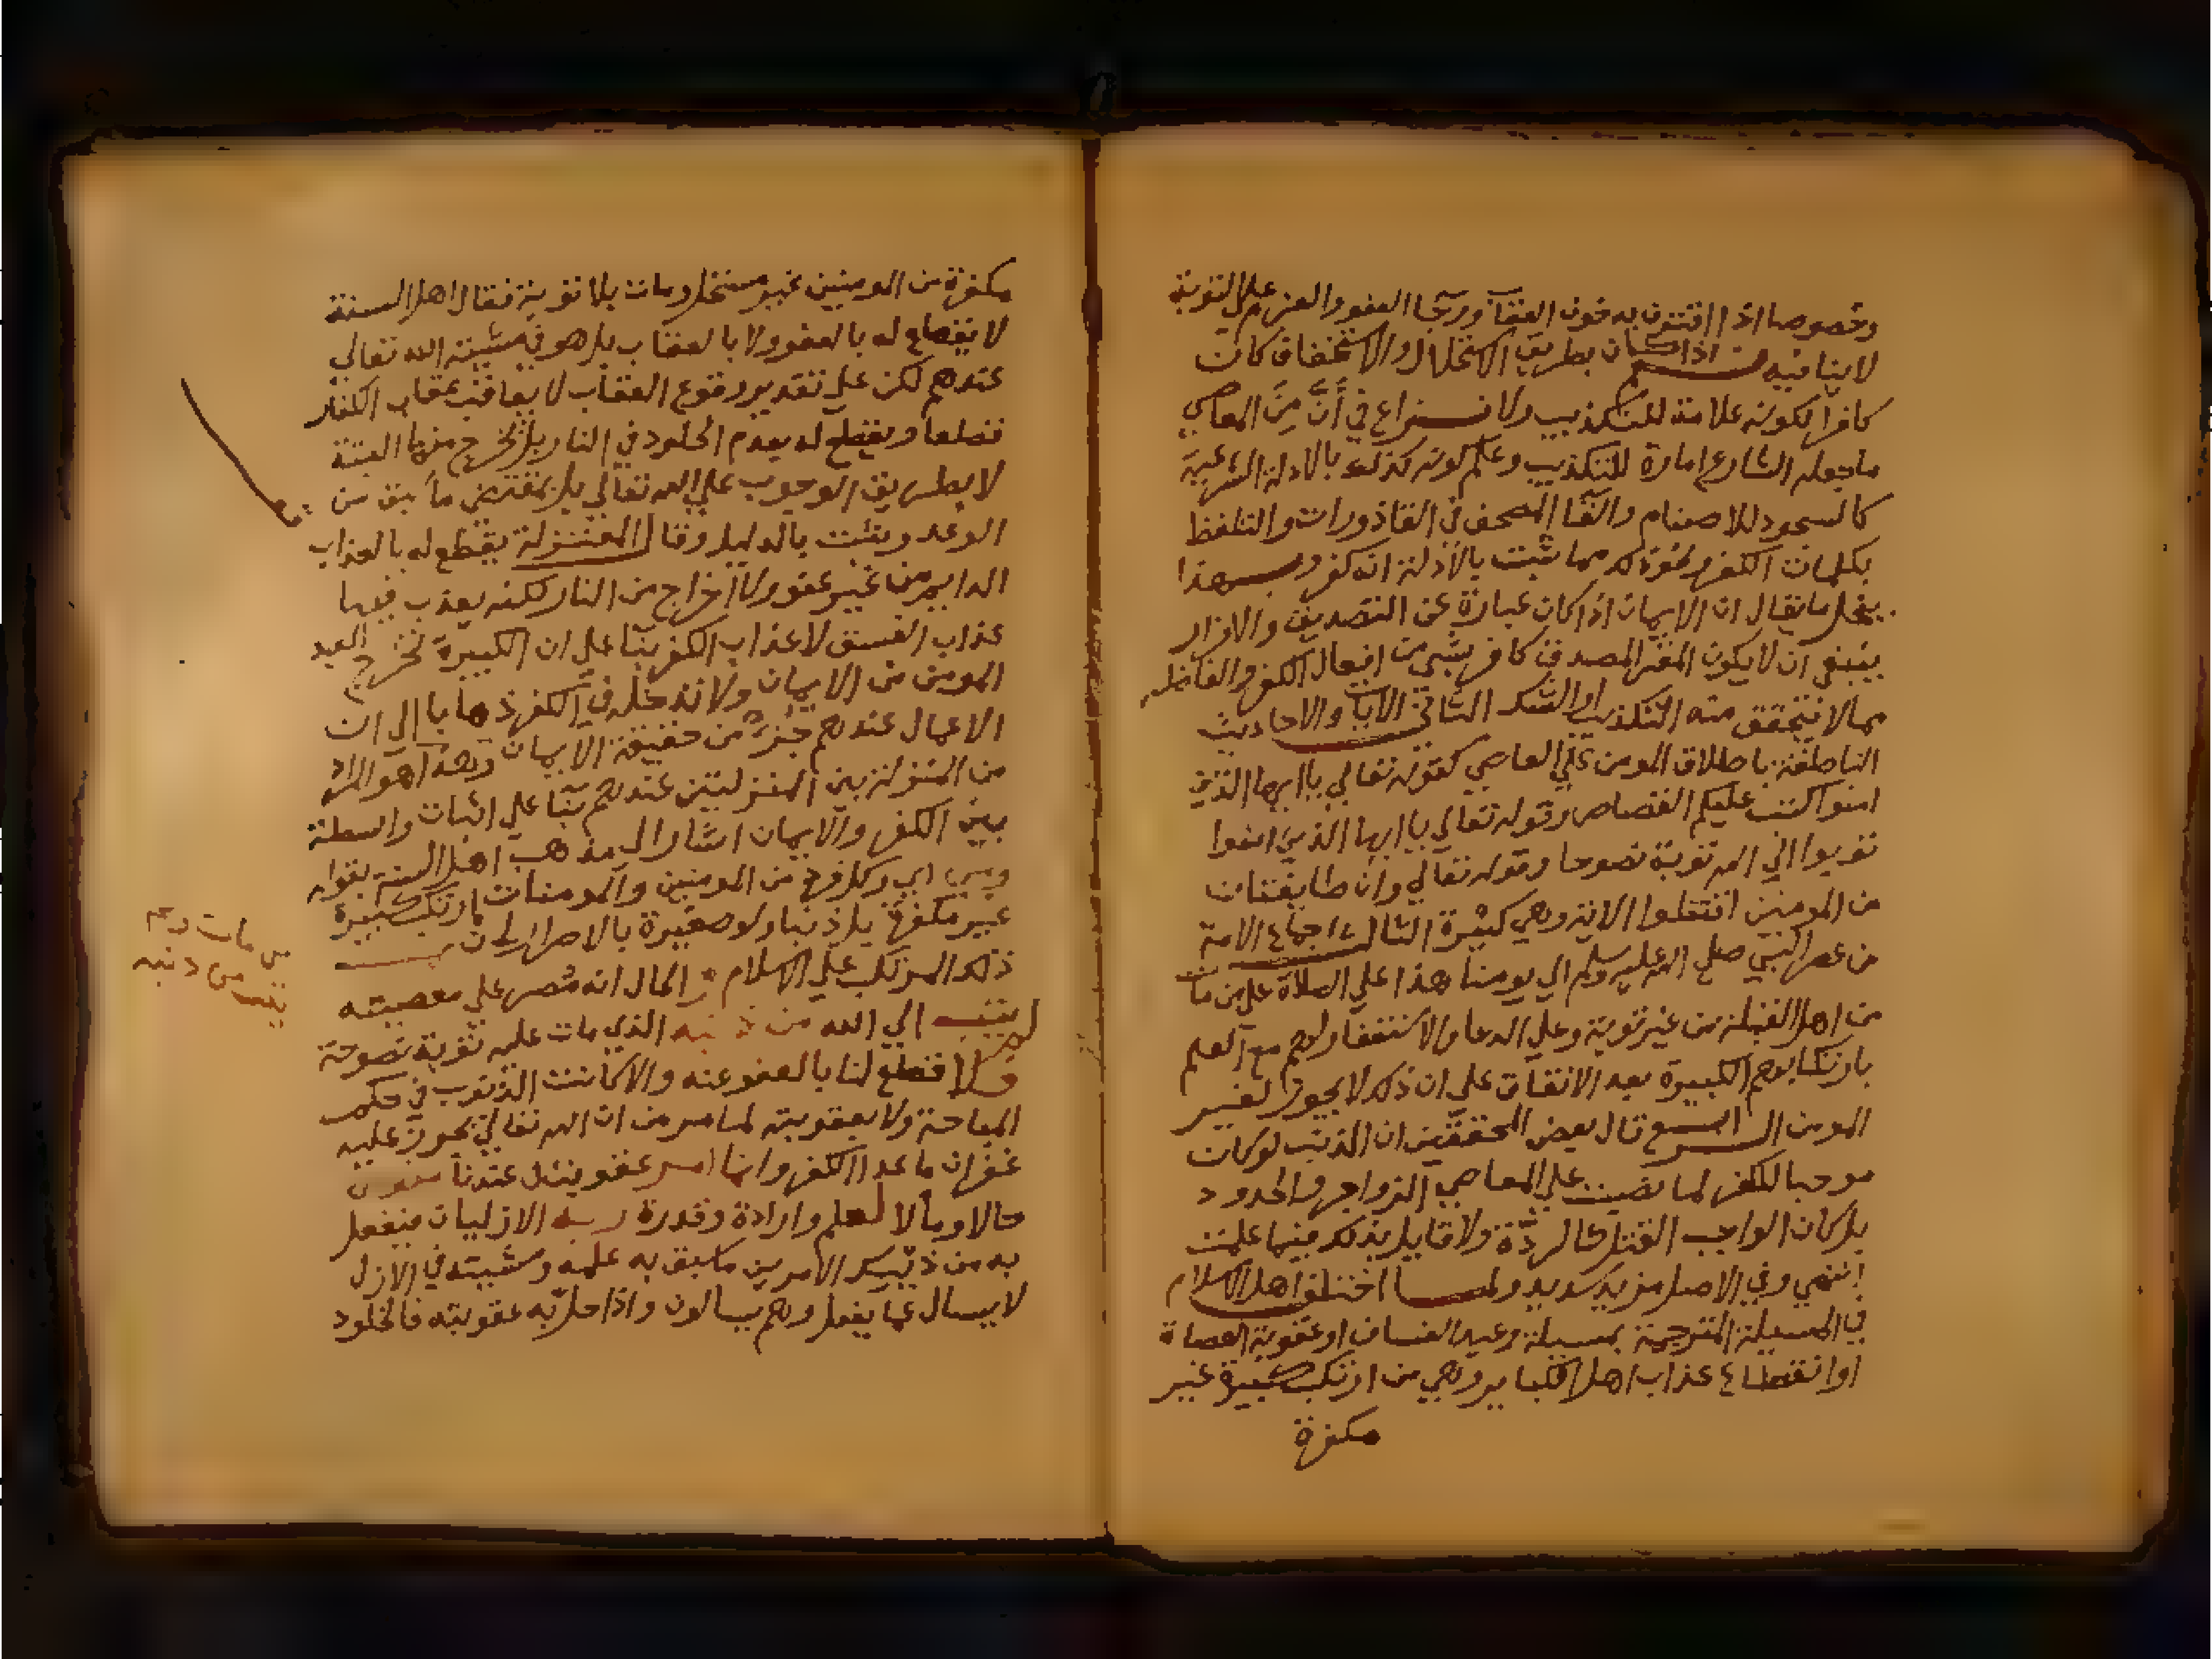 وخصوصا اذا اقترن به خوف العقاب ورجا العفو والعزم على التوبة
لا ينافيه نعم اذا كان بطريق الاستحلال والاستخفاف كان
كافرا لكونه علامة للتكذيب ولا نزاع في أنَّ مِنَ المعاصي
ما جعله الشارع امارة للتكذيب وعلم كونه كذلك بالادلة الشرعية
كالسجود للاصنام والقا المصحف في القاذورات والتلفظ
بكلمات الكفر ونحو ذلك مما ثبت بالأدلة انه كفر وبهذا
ينحل ما يقال ان الايمان اذا كان عبارة عن التصديق والاقرار
ينبغي ان لا يكون المقر المصدق كافر بشي من افعال الكفر والفاظه
مما لا يتحقق منه التكذيب او الشك الثاني الايات والاحاديث
الناطقة باطلاق المومن على العاصي كقوله تعالي يا ايها الذين
امنوا كتب عليكم القصاص وقوله تعالي يا ايها الذين امنوا
توبوا الي الله توبة نصوحا وقوله تعالي وان طايفتان
من المومنين اقتتلوا الاية وهي كثيرة الثالث اجماع الامة
من عصر النبي صلي الله عليه وسلم الي يومنا هذا علي الصلاة على من مات
من اهل القبلة من غير توبة وعلي الدعا والاستغفار لهم مع العلم
بارتكابهم الكبيرة بعد الاتفاق على ان ذلك لا يجوز لغير
المومن الرابع قال بعض المحققين ان الذنب لو كان
موجبا للكفر لما نصبت علي المعاصي الزواجر والحدود
بل كان الواجب القتل كالردة ولا قايل بذلك فيما علمت
انتهي وفي الاصل مزيد كديد ولما اختلف اهل الاسلام
في المسيلة المترجمة بمسيلة وعيد الفساق او عقوبة العصاة
او انقطاع عذاب اهل الكباير وهي من ارتكب كبيرة غير
مكفرة
مكفرة من المومنين غير مستحل ومات بلا توبة فقال اهل السنة
لا يقطع له بالعفو ولا بالعقاب بل هو في مشية الله تعالي
عندهم لكن علي تقدير وقوع العقاب لا يعاقب عقاب الكفار
قطعا ويقطع له بعدم الخلود في النار بل يخرج منها البتة
لا بطريق الوجوب علي الله تعالي بل بمقتضي ما سبق من
الوعد وثبت بالدليل وقال المعتزلة يقطع له بالعذاب
الدايم من غير عفو ولا اخراج من النار لكنه يعذب فيها
عذاب الفسق لا عذاب الكفر بنا على ان الكبيرة تخرج العبد
المومن من الايمان ولا تدخله في الكفر ذهابا الى ان
الاعمال عندهم جزء من حقيقة الايمان وهذا هو المراد
من المنزلة بين المنزلتين عندهم بنا علي اثبات واسطة
بين الكفر والايمان اشار الى مذهب اهل السنة بقوله
ومن اي وكل فرد من المومنين والمومنات ارتكب كبيرة
غير مكفرة بلا ذنبا ولو صغيرة بالاصرار
ذلك المرتكب علي الاسلام و الحال انه مصر علي معصيته
لم يتب الي الله من ذنبه الذي مات عليه توبة نصوحة
فلا قطع لنا بالعفو عنه والا كانت الذنوب في حكم
المباحة ولا بعقوبته لما مر من ان الله تعالي يجوز عليه
غفران ما عدا الكفر وانما امر عفو بتك عندنا مفوض
حالا ومآلا لعلم وارادة وقدرة ربه الازليات فيفعل
به من ذينك الامرين ما سبق به علمه ومشيته في الازل
لا يسال عما يفعل وهم يسالون واذا حل به عقوبته فالخلود
من مات ولم
يتب من ذنبه